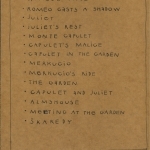 ROMEO CASTS A SHADOW
JULIET
JULIET'S REST
MONTE CAPULET
CAPULET'S MALICE
CAPULET IN THE GARDEN
MERKUCIO
MERKUCIO'S RIDE
THE GARDEN
CAPULET AND JULIET
ALMSHOUSE
MEETING AT THE GARDEN